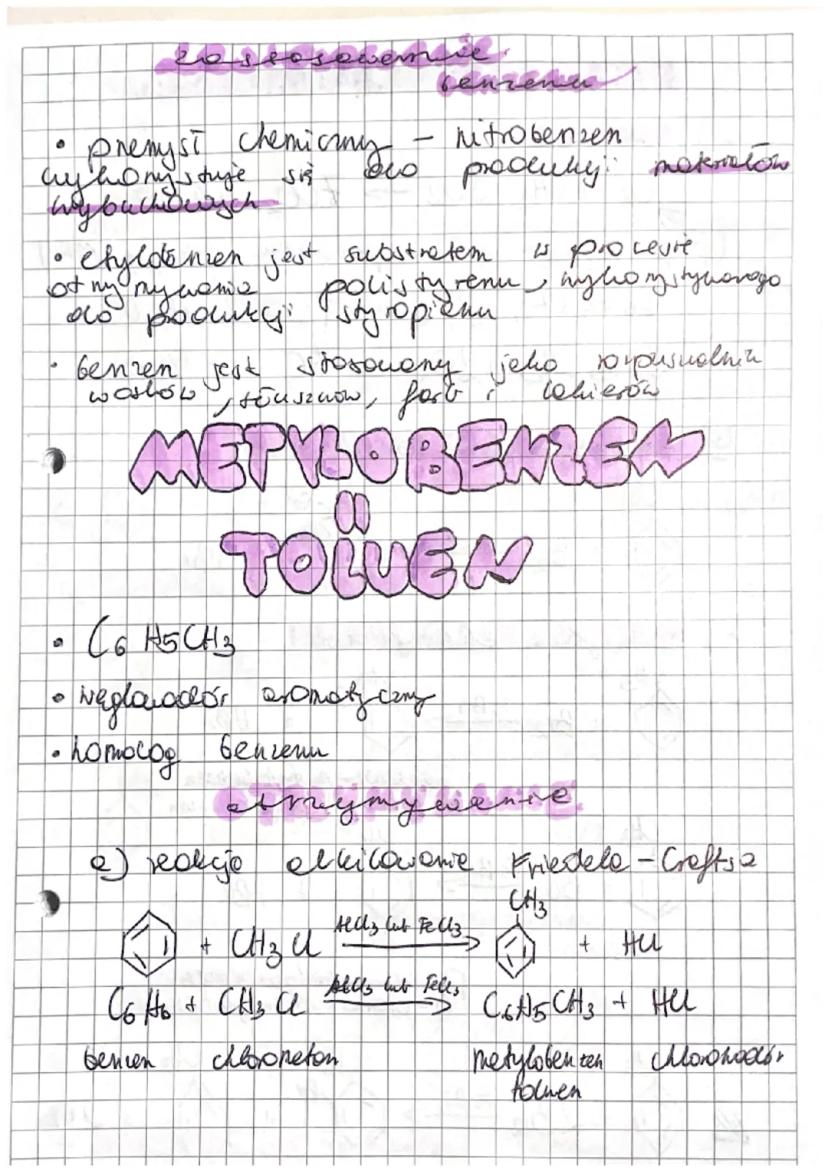 zastosowanie
benzenu
• przemysł chemiczny – nitrobenzen
wykorzystuje się do produkcji materiałów
wybuchowych
• etylobenzen jest substratem w procesie
otrzymywania polistyrenu, wykorzystywanego
do produkcji styropianu
• benzen jest stosowany jako rozpuszczalnik
wosków, tłuszczów, farb i lakierów
METYLOBENZEN
=
TOLUEN
• C6H5CH3
• węglowodór aromatyczny
• homolog benzenu
otrzymywanie
a) reakcja alkilowania Friedela – Craftsa
CH3
+ CH3Cl AlCl3 lub FeCl3 + HCl
C6H6 + CH3Cl AlCl3 lub FeCl3 C6H5CH3 + HCl
benzen chlorometan metylobenzen chlorowodór
toluen